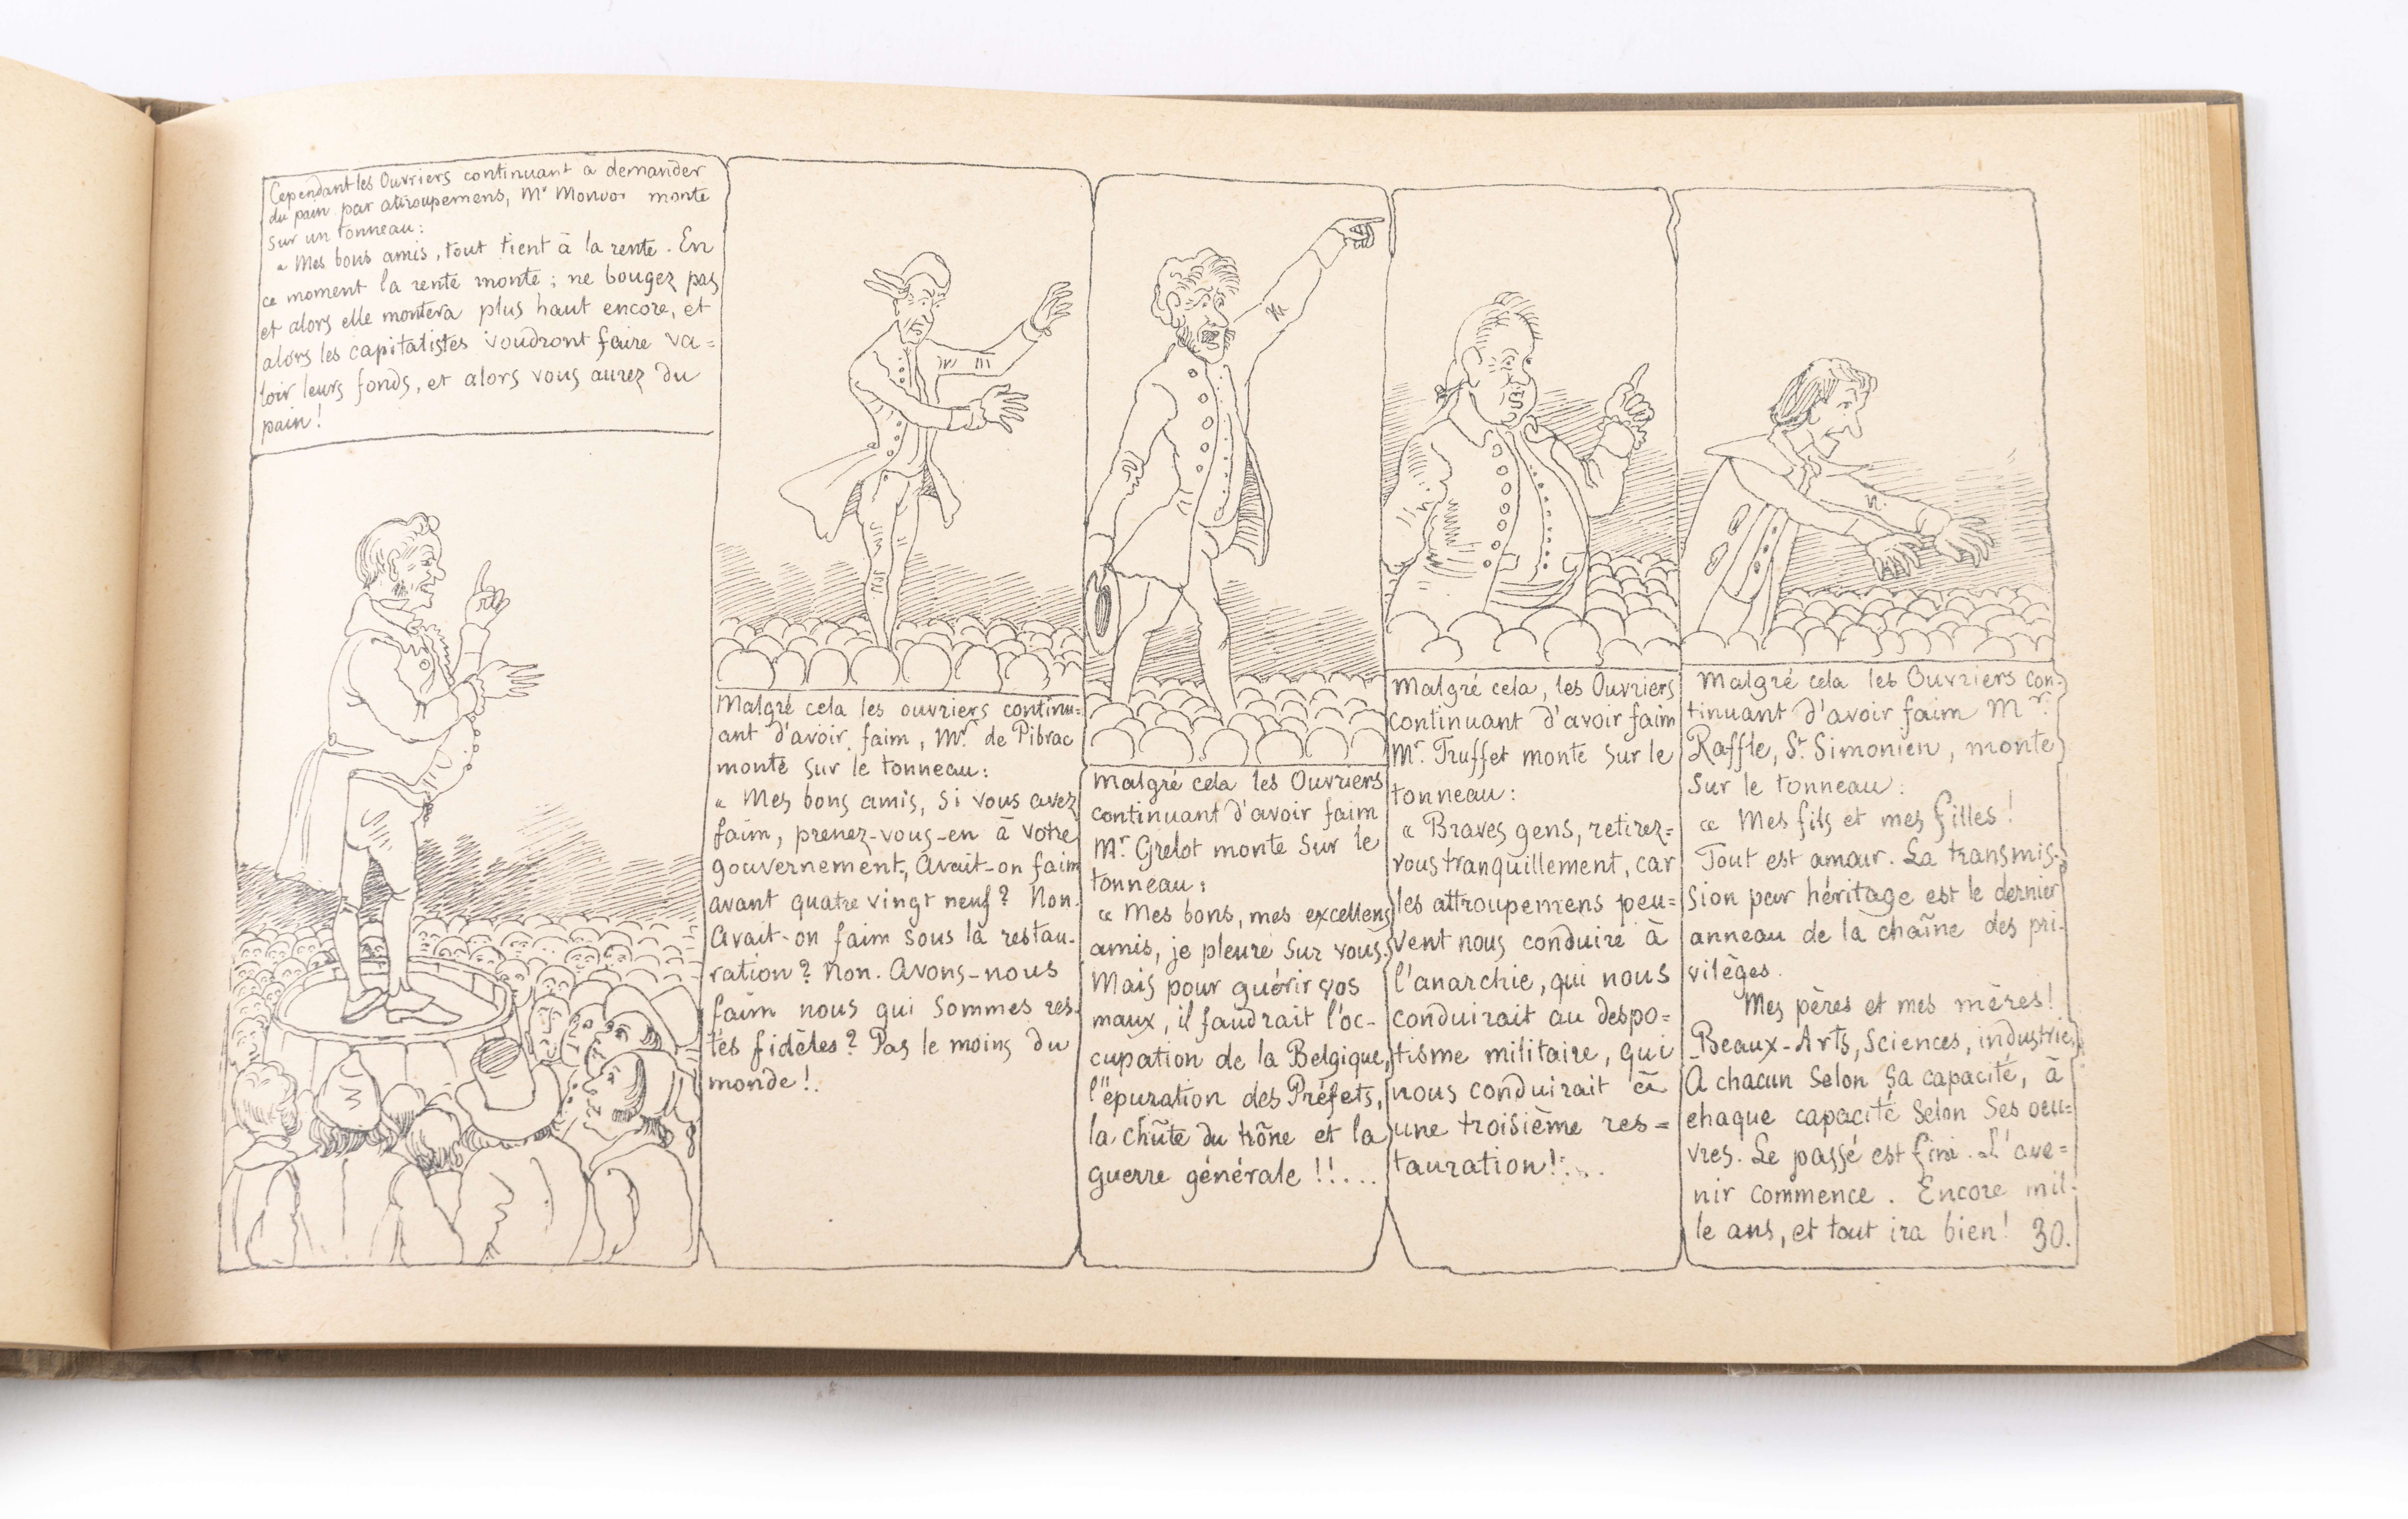 Cependant les Ouvriers continuant à demander
du pain par attroupemens, Mr Monvoi monte
sur un tonneau:
« Mes bons amis, tout tient à la rente. En
ce moment la rente monte; ne bougez pas
et alors elle montera plus haut encore, et
alors les capitalistes voudront faire va=
loir leurs fonds, et alors vous aurez du
pain!
Malgré cela les ouvriers continu=
ant d'avoir faim, Mr. de Pibrac
monte sur le tonneau:
« Mes bons amis, si vous avez
faim, prenez-vous-en à votre
gouvernement, Avait-on faim
avant quatre vingt neuf? Non.
Avait-on faim sous la restau-
ration? Non. Avons-nous
faim nous qui sommes res-
tés fidèles? Pas le moins du
monde!.
Malgré cela les Ouvriers
continuant d'avoir faim
Mr. Grelot monte sur le
tonneau:
« Mes bons, mes excellens
amis, je pleure sur vous.
Mais pour guérir vos
maux, il faudrait l'oc-
cupation de la Belgique,
l'épuration des Préfets,
la chûte du trône et la
guerre générale!!....
Malgré cela, les Ouvriers
continuant d'avoir faim
Mr. Truffet monte sur le
tonneau:
« Braves gens, retirez=
vous tranquillement, car
les attroupemens peu=
vent nous conduire à
l'anarchie, qui nous
conduirait au despo=
tisme militaire, qui
nous conduirait à
une troisième res=
tauration!...
Malgré cela les Ouvriers con-
tinuant d'avoir faim Mr.
Raffle, St. Simonien, monte
sur le tonneau:
« Mes fils et mes filles!
Tout est amour. La transmis-
sion par héritage est le dernier
anneau de la chaîne des pri-
vilèges.
Mes pères et mes mères!
Beaux-Arts, Sciences, industrie,
A chacun selon sa capacité, à
chaque capacité selon ses oeu=
vres. Le passé est fini. L'ave=
nir commence. Encore mil-
le ans, et tout ira bien! 30.